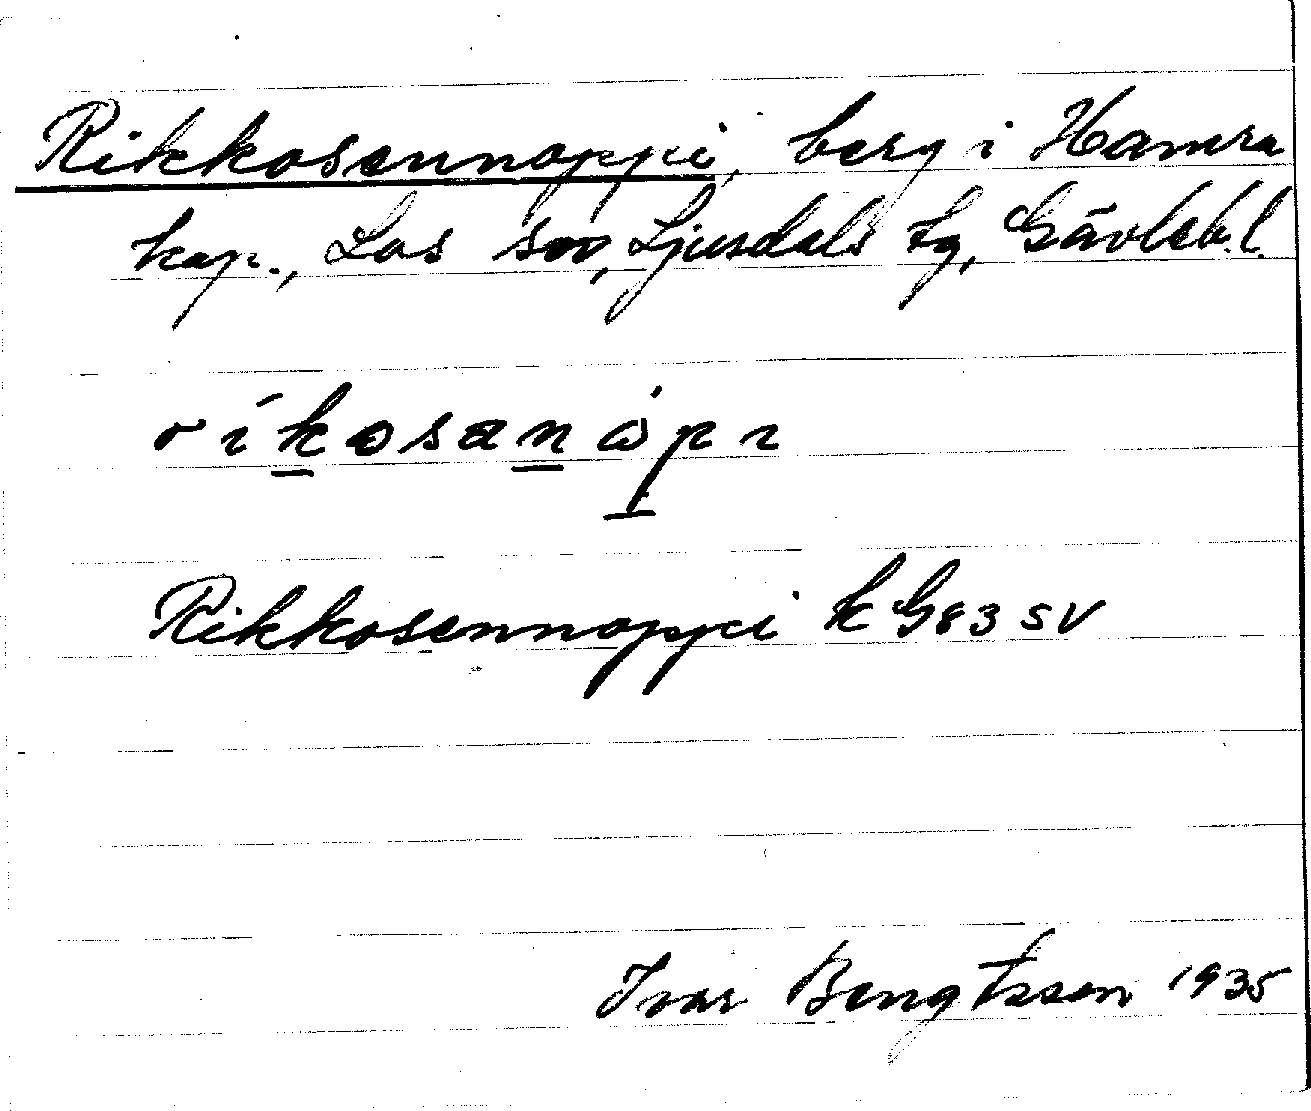 Rikkosennoppi, berg i Hamra
kap., Los sn, Ljusdals tg, Gävleb.l.
ríkosanòpı
Rikkosennoppi k G83 SV
Ivar Bengtsson 1935